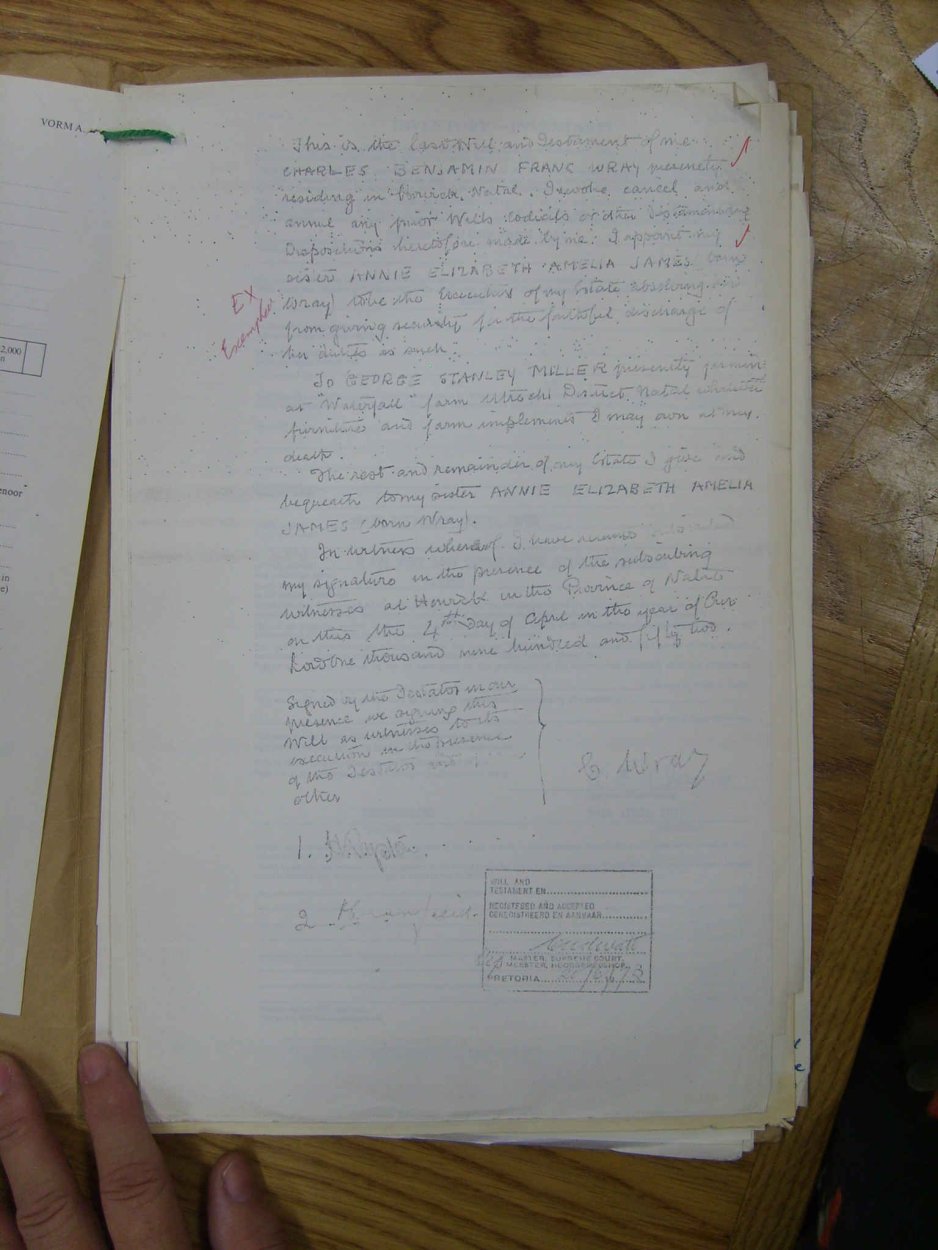 VORM A
2,000
n
enoor
in
e)
This is the last Will and Testament of me
CHARLES BENJAMIN FRANC WRAY presently
residing in Howick, Natal. I revoke, cancel and
annul any prior Wills Codicils or other Testamentary
Dispositions heretofore made by me. I appoint my
sister ANNIE ELIZABETH AMELIA JAMES (born
Wray) to be the Executrix of my Estate absolving her
from giving security for the faithful discharge of
her duties as such.
EX
To GEORGE STANLEY MILLER presently farming
at "Waterfall" farm District, Natal whatever
furniture and farm implements I may own at my
death.
The rest and remainder of my Estate I give and
bequeath to my sister ANNIE ELIZABETH AMELIA
JAMES (born Wray).
In witness whereof I have hereunto subscribed
my signature in the presence of the subscribing
witnesses at Howick in the Province of Natal
on this the 4th day of April in the year of Our
Lord one thousand nine hundred and fifty two.
Signed by the Testator in our
presence we signing this
Will as witnesses to its
execution in the presence
of the Testator and
other
C Wray
1.
2
WILL AND
TESTAMENT EN
REGISTERED AND ACCEPTED
GEREGISTREERD EN AANVAAR
MASTER, SUPREME COURT.
MEESTER, HOOGGEREGSHOF.
PRETORIA